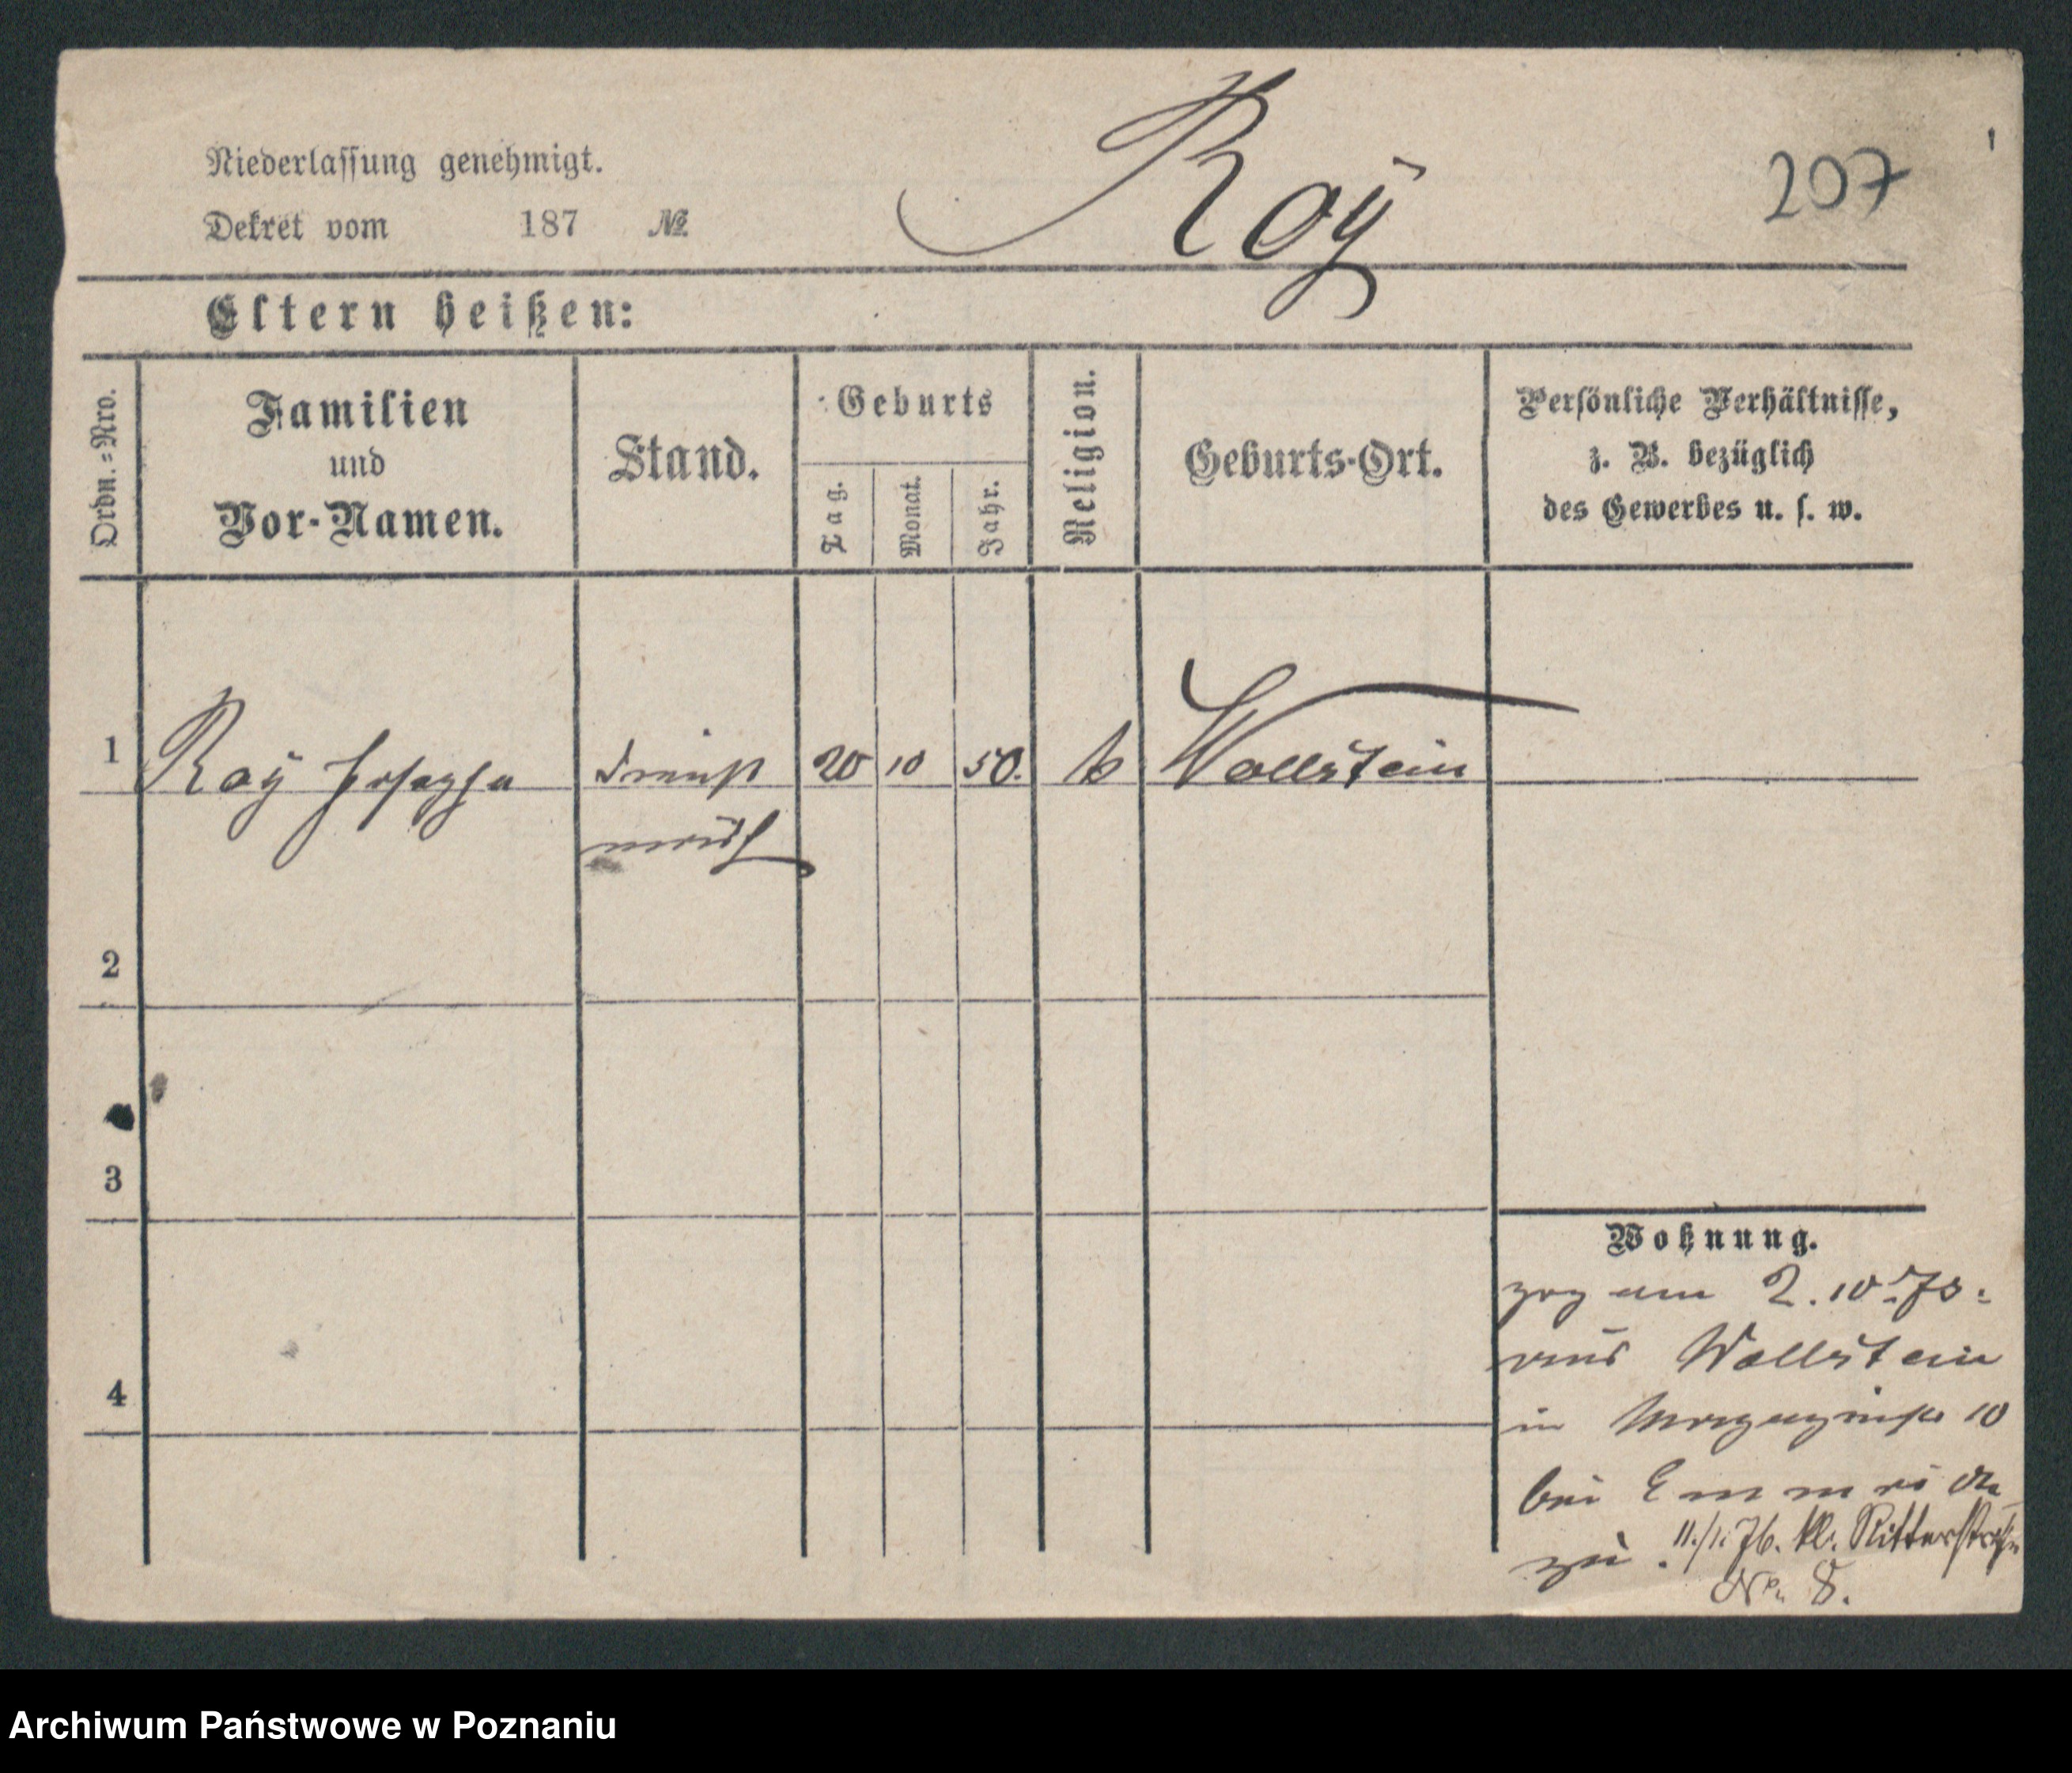 Niederlassung genehmigt.
Dekret vom 187 №
Roy
207
Eltern heißen:
Ordn.=Nro.
Familien
und
Vor-Namen.
Stand.
Geburts
Tag.
Monat.
Jahr.
Religion.
Geburts-Ort.
Persönliche Verhältnisse,
z. B. bezüglich
des Gewerbes u. s. w.
1 Roy Josepha Dienst 20 10 50. k Wollstein
2
3
4
Wohnung.
zog am 2.10.75.
aus Wollstein
in 10
bei
zu. 11./1. 76. kl. Ritterstraße
No. 8.
Archiwum Państwowe w Poznaniu